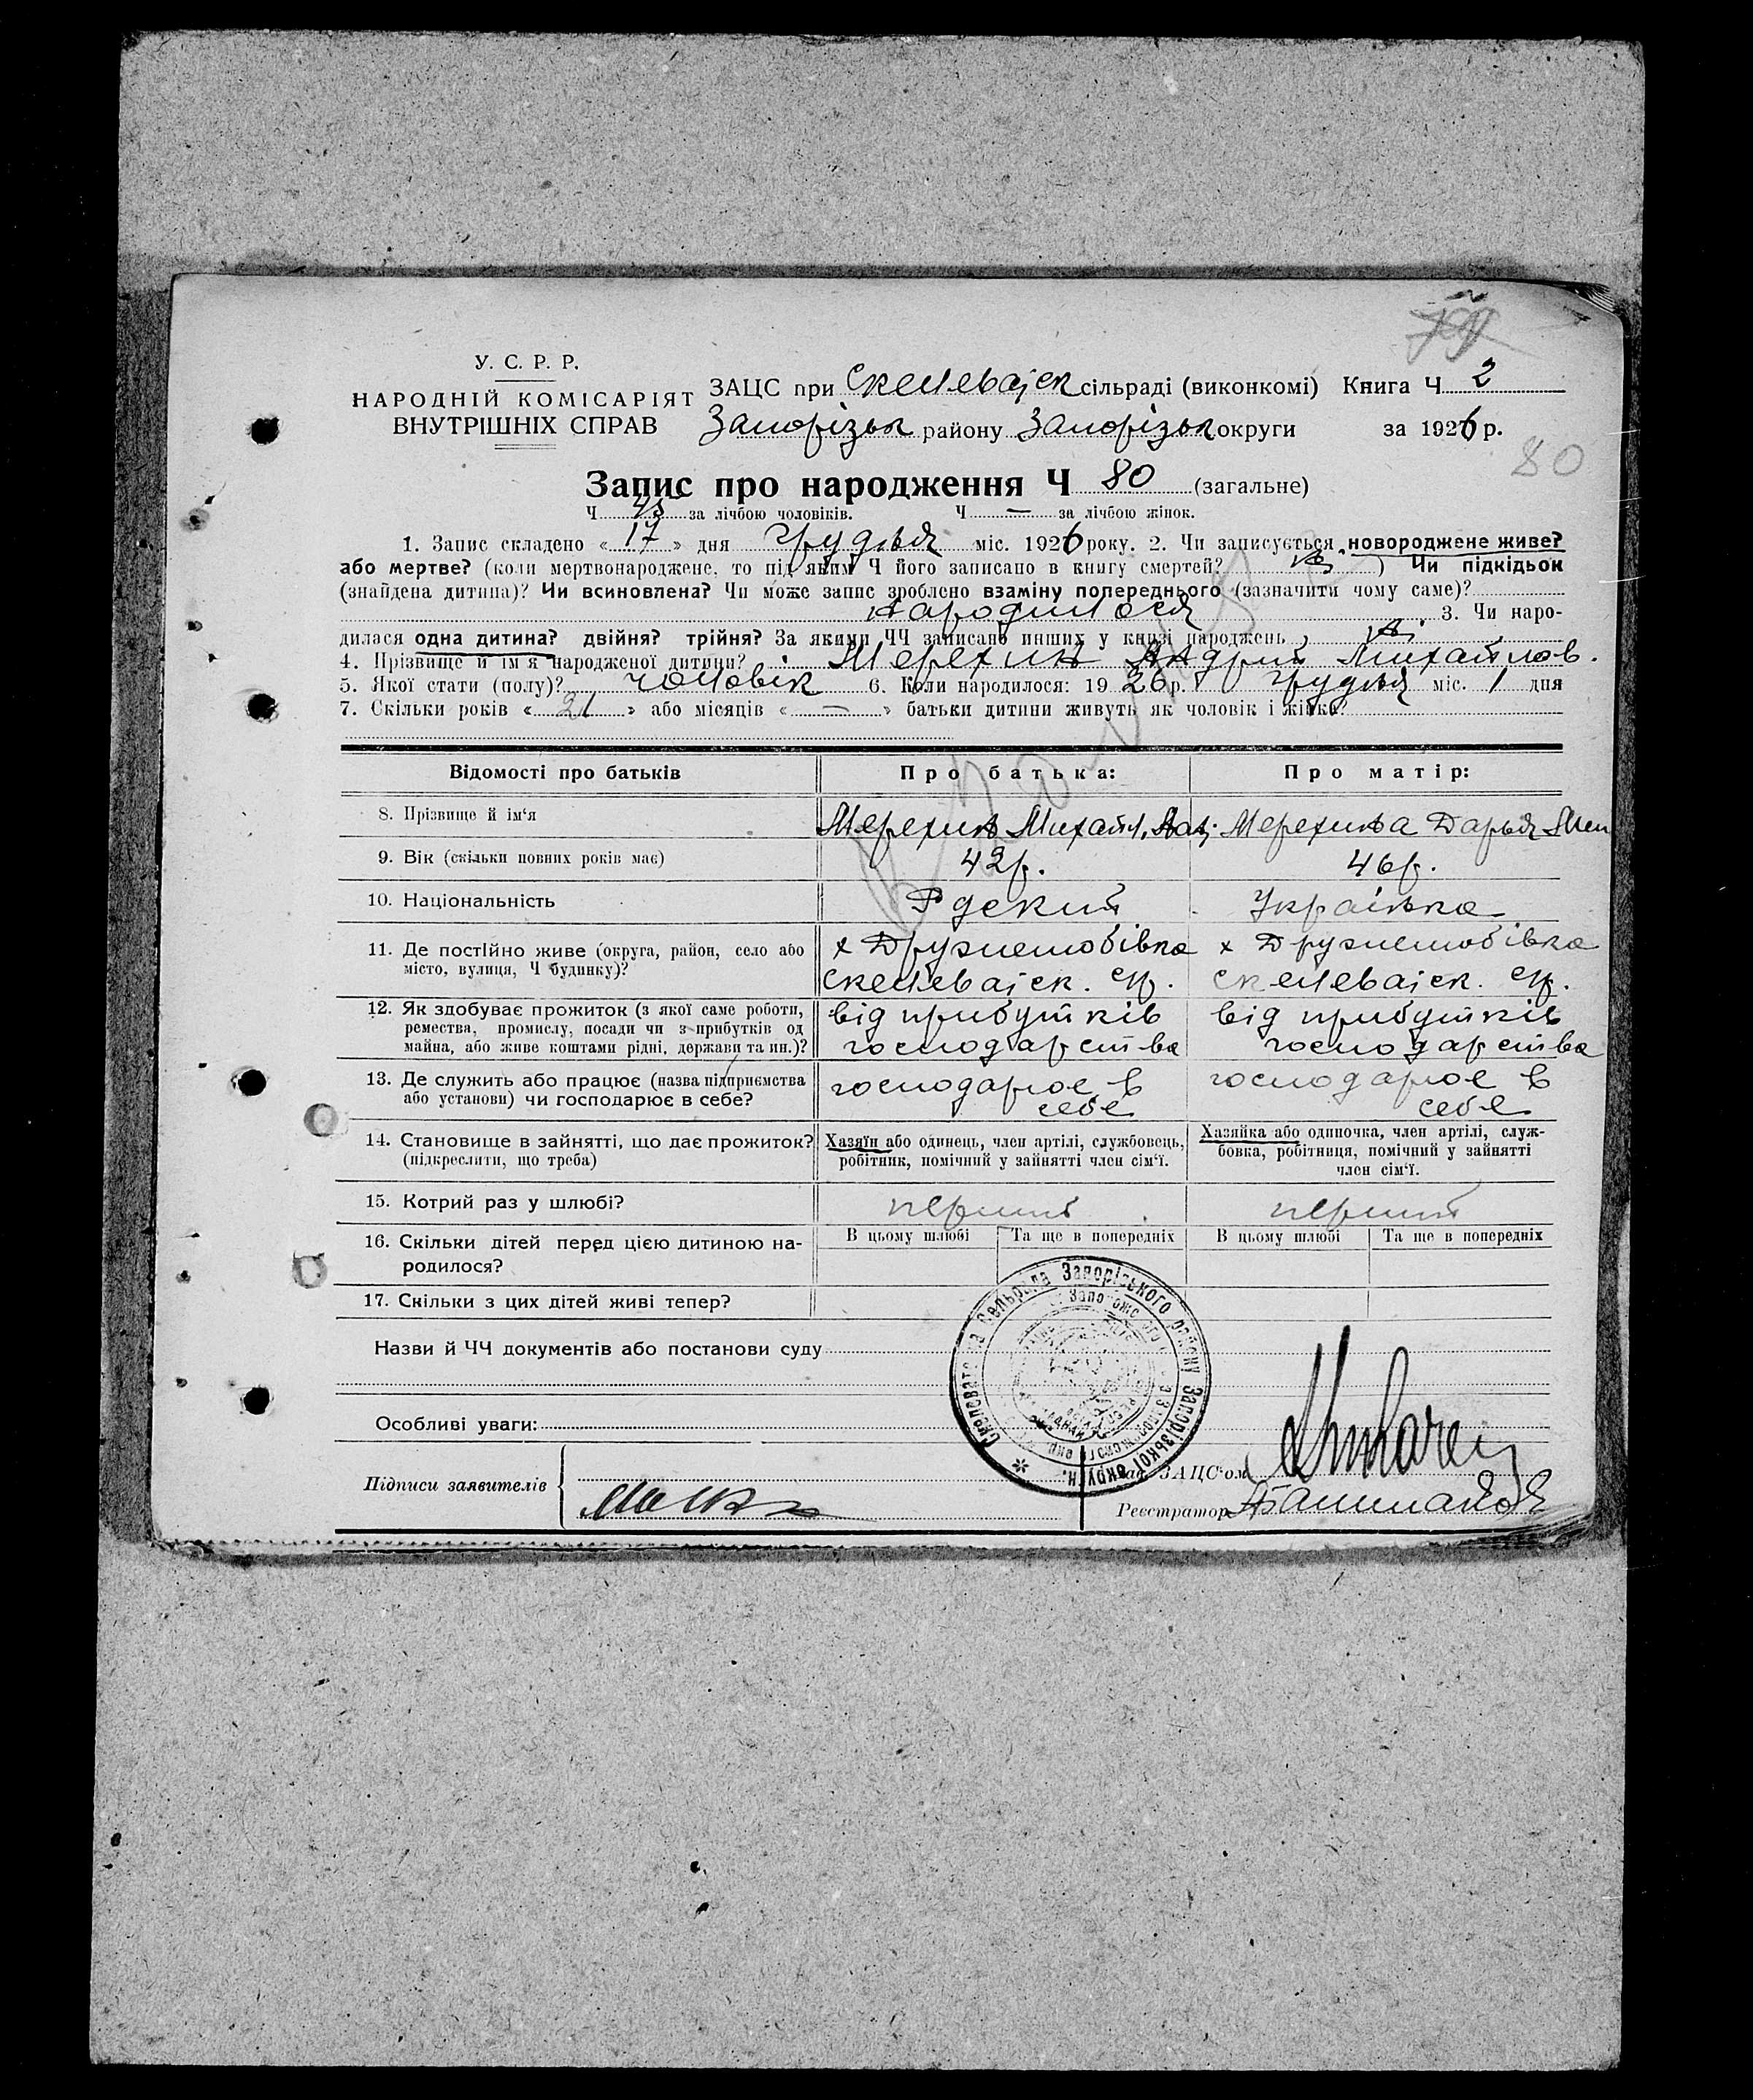 У. С. Р. Р.
НАРОДНІЙ КОМІСАРІЯТ
ВНУТРІШНІХ СПРАВ
ЗАЦС при Скелеваjск сільраді (виконкомі) Книга Ч 2
Запорізьк району Запорізьк округи за 1926 р.
80
Запис про народження Ч 80 (загальне)
Ч 45 за лічбою чоловіків. Ч — за лічбою жінок.
1. Запис складено « 17 » дня Грудня міс. 1926 року. 2. Чи записується новороджене живе?
або мертве? (коли мертвонароджене, то під яким Ч його записано в книгу смертей? ) Чи підкідьок
(знайдена дитина)? Чи всиновлена? Чи може запис зроблено взаміну попереднього (зазначити чому саме)?
народилося 3. Чи наро-
дилася одна дитина? двійня? трійня? За якими ЧЧ записано инших у книзі народжень
4. Прізвище й ім'я народженої дитини? Мерехин Андрий Михайлов.
5. Якої стати (полу)? чоловік 6. Коли народилося: 1926 р. Грудня міс. 1 дня
7. Скільки років « 21 » або місяців « — » батьки дитини живуть як чоловік і жінка?
Відомості про батьків Про батька: Про матір:
8. Прізвище й ім'я Мерехин Михайл, Мерехина Дарья
9. Вік (скільки повних років має) 42р. 46р.
10. Національність Українка
11. Де постійно живе (округа, район, село або х Дружелюбівка х Дружелюбівка
місто, вулиця, Ч будинку)? Скелеваjск. ср. Скелеваjск. ср.
12. Як здобуває прожиток (з якої саме роботи, від прибутків від прибутків
ремества, промислу, посади чи з прибутків од
майна, або живе коштами рідні, держави та ин.)? господарства господарства
13. Де служить або працює (назва підприємства господарює в господарює в
або установи) чи господарює в себе? себе себе
14. Становище в зайнятті, що дає прожиток? Хазяїн або одинець, член артілі, службовець, Хазяйка або одиночка, член артілі, служ-
(підкреслити, що треба) робітник, помічний у зайнятті член сім'ї. бовка, робітниця, помічний у зайнятті
член сім'ї.
15. Котрий раз у шлюбі? перший перший
16. Скільки дітей перед цією дитиною на- В цьому шлюбі Та ще в попередніх В цьому шлюбі Та ще в попередніх
родилося?
17. Скільки з цих дітей живі тепер?
Назви й ЧЧ документів або постанови суду
Сельрада Запорізського району Запорізької округи
Особливі уваги:
Підписи заявителів
Зав. ЗАЦС'ом
Реєстратор